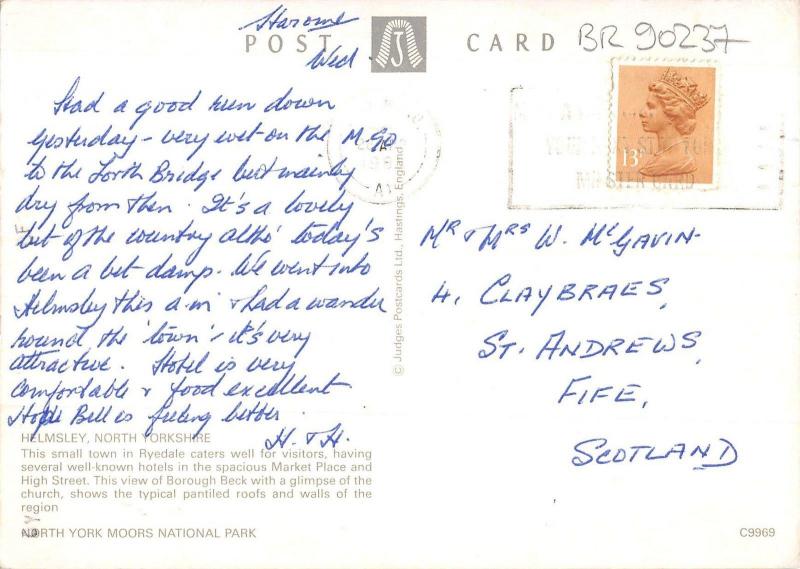 Harome
POST CARD BR 90237
Wed
Had a good run down
yesterday - very wet on the M.90
to the Forth Bridge but mainly
dry from then. It's a lovely
bit of the country altho' today's
been a bit damp. We went into
Helmsley this a.m & had a wander
round the 'town', it's very
attractive. Hotel is very
comfortable & food excellent
Hope Bill is feeling better.
H. & H.
HELMSLEY, NORTH YORKSHIRE
This small town in Ryedale caters well for visitors, having
several well-known hotels in the spacious Market Place and
High Street. This view of Borough Beck with a glimpse of the
church, shows the typical pantiled roofs and walls of the
region
NORTH YORK MOORS NATIONAL PARK
© Judges Postcards Ltd., Hastings, England
13P
MR & MRS W. McGAVIN
4, CLAYBRAES,
ST. ANDREWS,
FIFE,
SCOTLAND
C9969